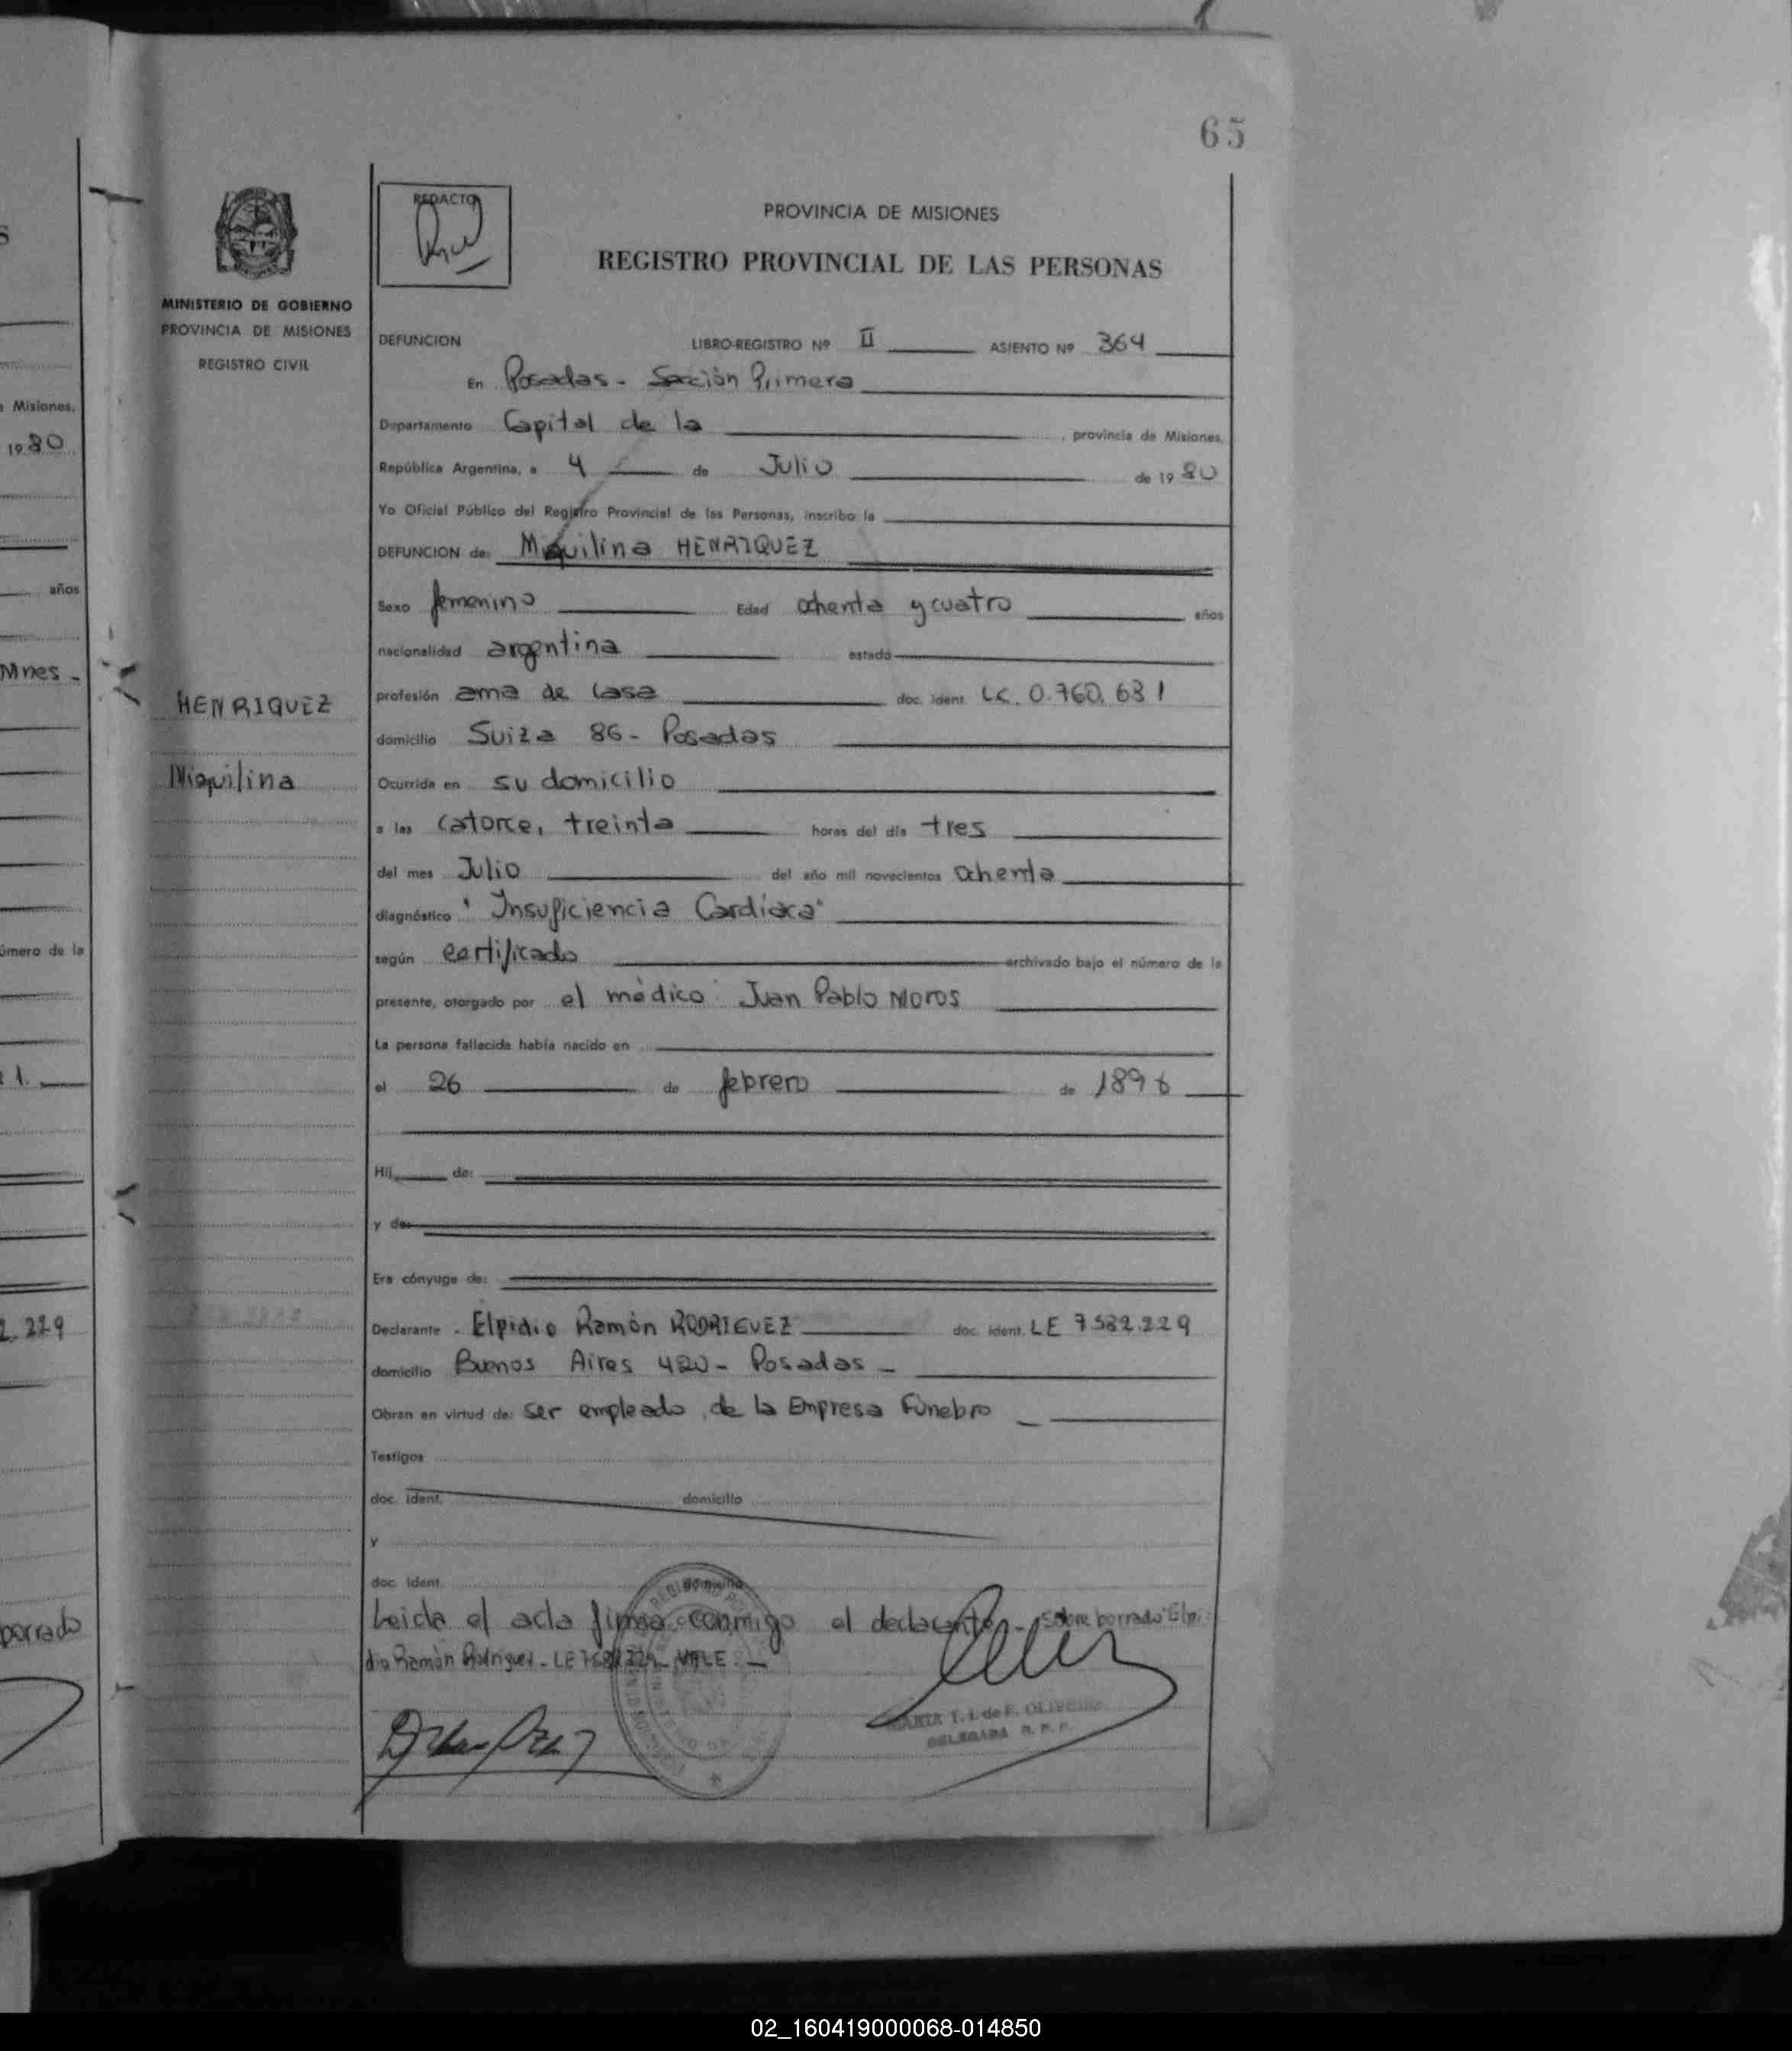 65
REDACTO
PROVINCIA DE MISIONES
REGISTRO PROVINCIAL DE LAS PERSONAS
MINISTERIO DE GOBIERNO
PROVINCIA DE MISIONES
REGISTRO CIVIL
DEFUNCION LIBRO-REGISTRO Nº II ASIENTO Nº 364
En Posadas - Sección Primera
Departamento Capital de la , provincia de Misiones,
República Argentina, a 4 de Julio de 1980
Yo Oficial Público del Registro Provincial de las Personas, inscribo la
DEFUNCION de: Miquilina HENRIQUEZ
Sexo femenino Edad ochenta y cuatro años
nacionalidad argentina estado
profesión ama de casa doc. ident. LC. 0.760.631
domicilio Suiza 86 - Posadas
Ocurrida en su domicilio
a las catorce, treinta horas del día tres
del mes Julio del año mil novecientos ochenta
diagnóstico "Insuficiencia Cardíaca"
según certificado archivado bajo el número de la
presente, otorgado por el médico: Juan Pablo Moros
La persona fallecida había nacido en
el 26 de febrero de 1896
Hij de:
y de:
Era cónyuge de:
Declarante - Elpidio Ramón RODRIGUEZ doc. ident. LE 7582.229
domicilio Buenos Aires 420 - Posadas -
Obran en virtud de: ser empleado de la Empresa Fúnebre
Testigos
doc. ident. domicilio
y
doc. ident. domicilio
Leida el acta firma conmigo el declarante - Sobre borrado "Elpi-
dio Ramón Rodriguez - LE 7582.229 - VALE. -
MARIA T. I. de F. OLIVEIRA
DELEGADA R. P. P.
HENRIQUEZ
Miquilina
Misiones,
1980
años
Mnes -
número de la
1.
2.229
borrado
02_160419000068-014850